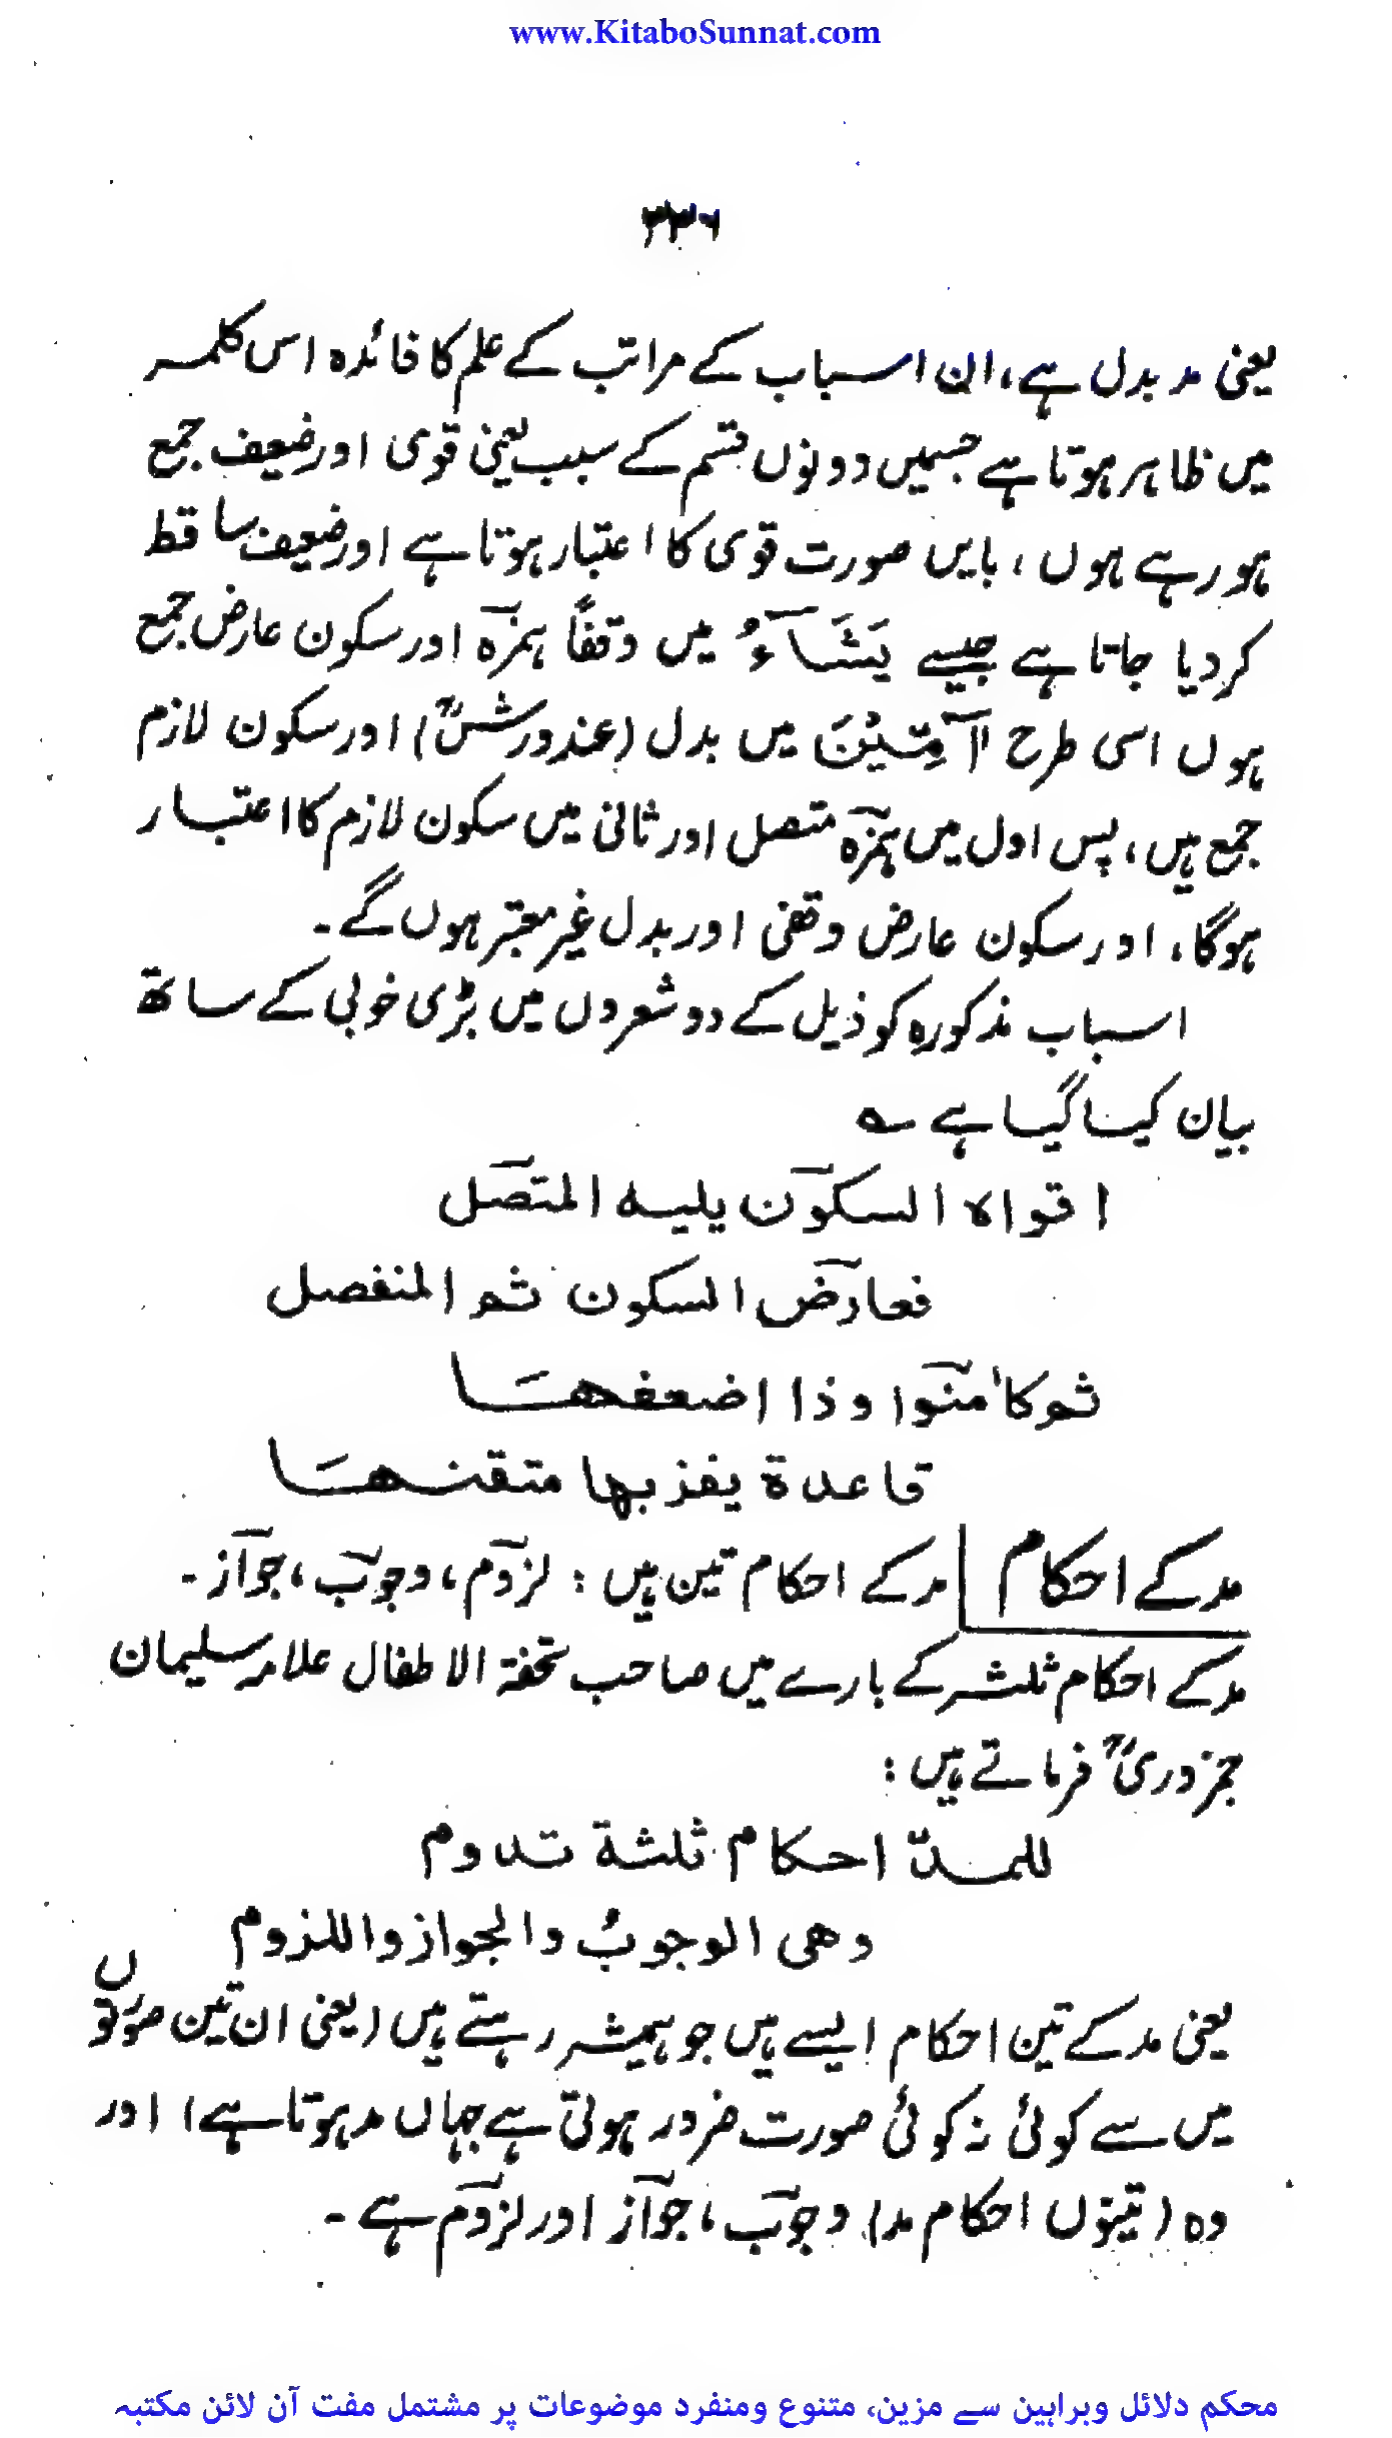 www.KitaboSunnat.com
۲۳۶
یعنی مد بدل ہے، ان اسباب کے مراتب کے علم کا فائدہ اس کلمہ
میں ظاہر ہوتا ہے جسمیں دونوں قسم کے سبب یعنی قوی اور ضعیف جمع
ہو رہے ہوں، بایں صورت قوی کا اعتبار ہوتا ہے اور ضعیف ساقط
کردیا جاتا ہے جیسے يَشَآءُ میں وقفاً ہمزہ اور سکون عارض جمع
ہوں اسی طرح آٰمِّیْنَ میں بدل (عند ورشؒ) اور سکون لازم
جمع ہیں، پس اول میں ہمزہ متصل اور ثانی میں سکون لازم کا اعتبار
ہوگا، اور سکون عارض وقفی اور بدل غیر معتبر ہوں گے۔
اسباب مذکورہ کو ذیل کے دو شعروں میں بڑی خوبی کے ساتھ
بیان کیا گیا ہے ؎
اقواہ السکون یلیہ المتصل
فعارض السکون ثم المنفصل
ثم کاٰمنوا وذا اضعفھَا
قاعدة یفز بھا متقنھَا
مد کے احکام
مد کے احکام تین ہیں: لزوم، وجوب، جواز۔
مد کے احکام ثلثہ کے بارے میں صاحب تحفۃ الاطفال علامہ سلیمان
جمزوریؒ فرماتے ہیں:
للمدّ احکام ثلثة تدوم
وھی الوجوبُ والجواز واللزوم
یعنی مد کے تین احکام ایسے ہیں جو ہمیشہ رہتے ہیں (یعنی ان تین صورتوں
میں سے کوئی نہ کوئی صورت ضرور ہوتی ہے جہاں مد ہوتا ہے) اور
وہ (تینوں احکام مد) وجوب، جواز اور لزوم ہے۔
محکم دلائل وبراہین سے مزین، متنوع ومنفرد موضوعات پر مشتمل مفت آن لائن مکتبہ